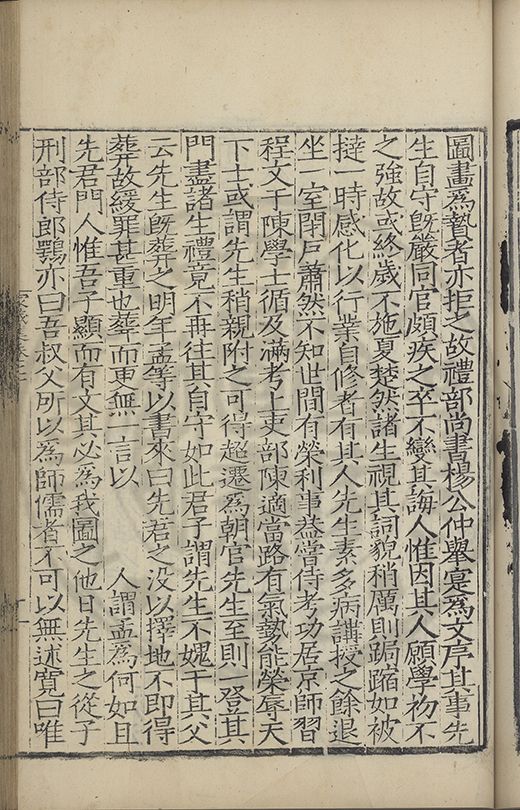 圖畫爲贄者亦拒之故禮部尚書楊公仲舉寔爲文序其事先
生自守既嚴同官頗疾之卒不變其誨人惟因其人願學初不
之強故或終歲不施夏楚然諸生視其詞貌稍厲則跼蹐如被
撻一時感化以行業自修者有其人先生素多病講授之餘退
坐一室閉戶蕭然不知世間有榮利事葢嘗侍考功居京師習
程文于陳學士循及滿考上吏部陳適當路有氣勢能榮辱天
下士或謂先生稍親附之可得超遷爲朝官先生至則一登其
門盡諸生禮竟不再往其自守如此君子謂先生不媿于其父
云先生既葬之明年孟等以書來曰先君之没以擇地不即得
葬故緩罪甚重也葬而更無一言以 人謂孟爲何如且
先君門人惟吾子顯而有文其必爲我圖之他日先生之從子
刑部侍郎鸚亦曰吾叔父所以爲師儒者不可以無述寛曰唯